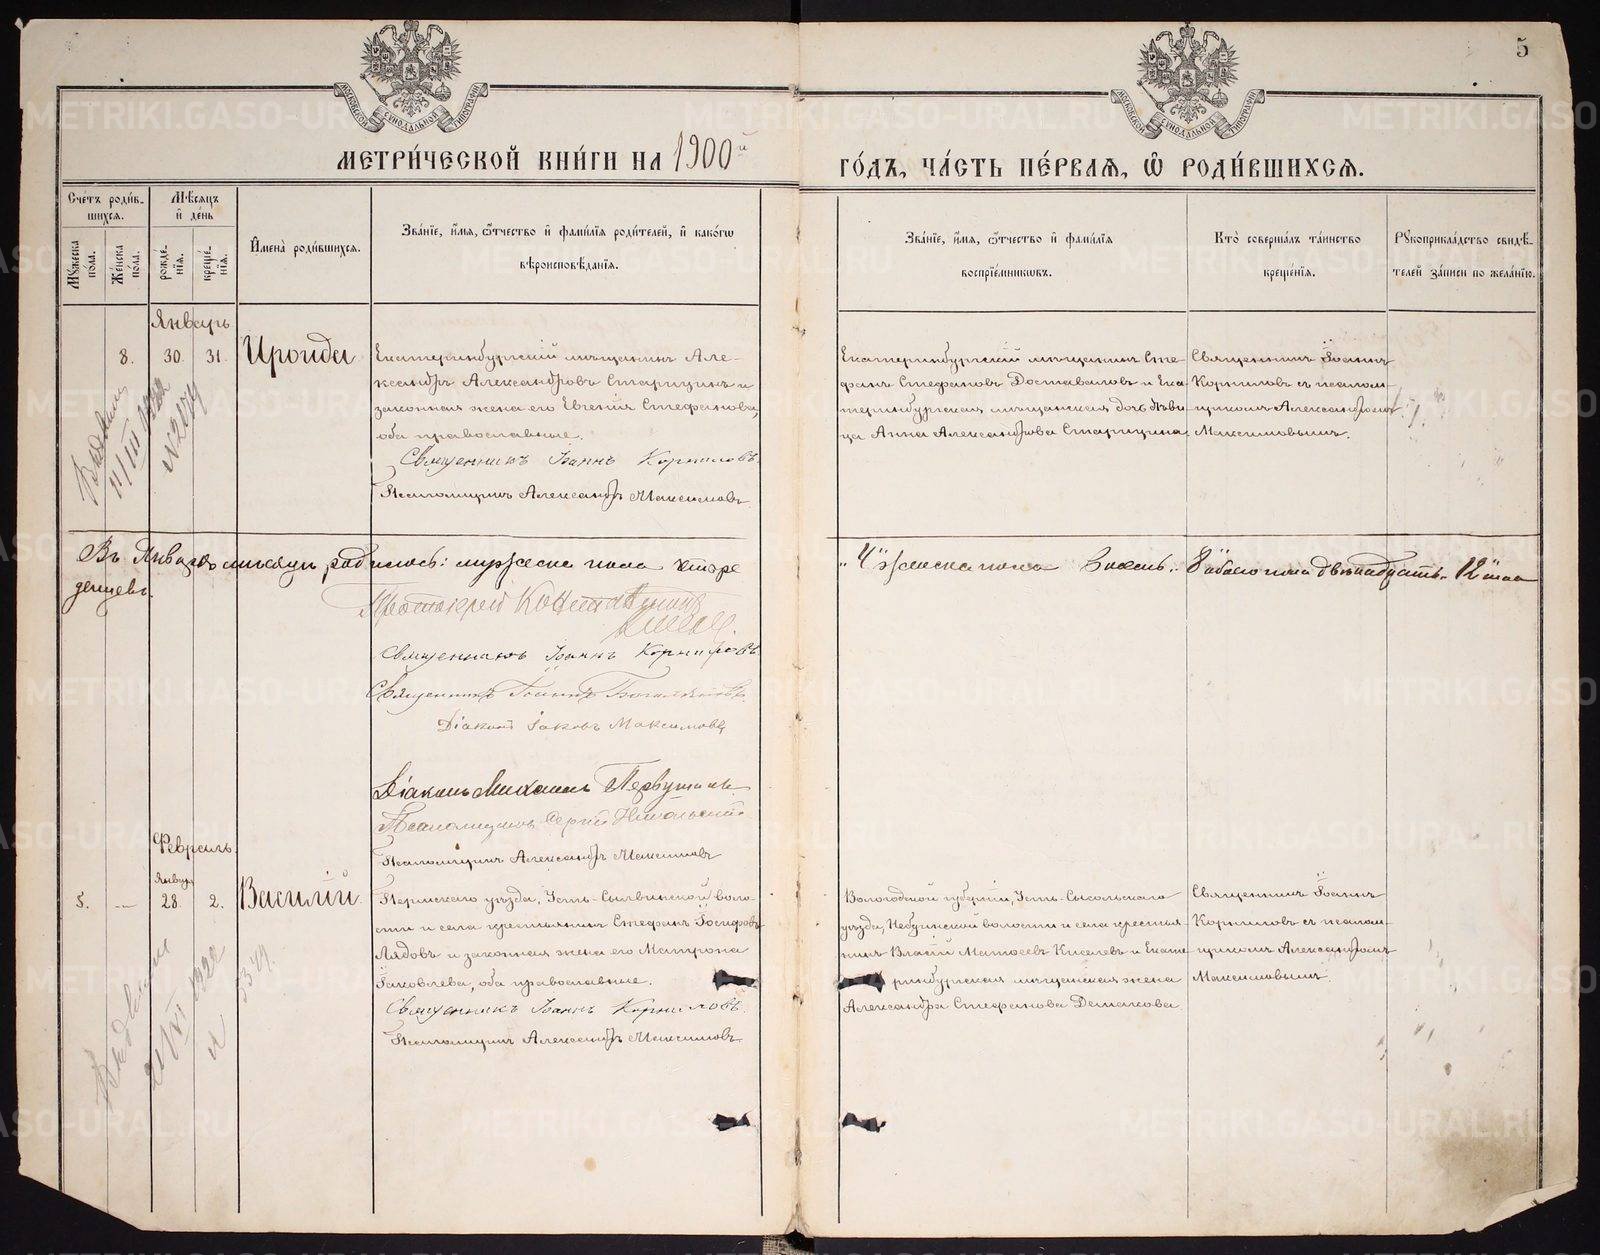 5
МОСКОВСКОЙ СѴНОДАЛЬНОЙ ТИПОГРАФІИ
МОСКОВСКОЙ СѴНОДАЛЬНОЙ ТИПОГРАФІИ
МЕТРИ́ЧЕСКОЙ КНИ́ГИ НА 1900й
ГО́ДЪ, ЧА́СТЬ ПЕ́РВАЯ, Ѽ РОДИ́ВШИХСЯ.
Сче́тъ роди́в-
шихся.
Мꙋ́жеска по́ла.
Же́нска по́ла.
Мѣ́сяцъ
и҆ де́нь
рожде́-
нїя.
креще́-
нїя.
И҆мена̀ роди́вшихся.
Зва́нїе, и҆́мя, ѻ҆́тчество и҆ фами́лїя роди́телей, и҆ како́гѡ
вѣроисповѣ́данїя.
Зва́нїе, и҆́мя, ѻ҆́тчество и҆ фами́лїя
воспрїе́мникѡвъ.
Кто̀ соверша́лъ та́инство
креще́нїя.
Рꙋкоприкла́дство свидѣ́-
телей за́писи по жела́нїю.
Январь
8. 30. 31. Ироида
Екатеринбургскій мѣщанинъ Але-
ксандръ Александровъ Старицинъ и
законная жена его Евгенія Стефанова,
оба православные.
Священникъ Іоаннъ Корниловъ.
Псаломщикъ Александръ Максимовъ
Екатеринбургскій мѣщанинъ Сте-
фанъ Стефановъ Доставаловъ и Ека-
теринбургская мѣщанская дочь дѣви-
ца Анна Александрова Старицина.
Священникъ Іоаннъ
Корниловъ съ псалом-
щикомъ Александромъ
Максимовымъ.
Выдана
11/III 1922
№2079
Въ Январѣ мѣсяцѣ родилось: мужеска пола четыре
„4“ женска пола восемь „8“ обоего пола двѣнадцать „12“
Протоіерей Константинъ
Священникъ Іоаннъ Корниловъ
Священникъ Іоаннъ
Діаконъ Іаковъ Максимовъ
Діаконъ Михаилъ Первушинъ
Псаломщикъ Сергій Никольскій
Псаломщикъ Александръ Максимовъ
Февраль.
Январь
5. — 28. 2. Василій
Пермскаго уѣзда, Усть-Сылвинской воло-
сти и села крестьянинъ Стефанъ Іосифовъ
Лядовъ и законная жена его Матрона
Іаковлева, оба православные.
Священникъ Іоаннъ Корниловъ.
Псаломщикъ Александръ Максимовъ
Вологодской губерніи, Усть-Сысольскаго
уѣзда, Небдинской волости и села крестья-
нинъ Власій Матѳеевъ Киселевъ и Екате-
ринбургская мѣщанская жена
Александра Стефанова Деталова.
Священникъ Іоаннъ
Корниловъ съ псалом-
щикомъ Александромъ
Максимовымъ
21/VI 1922
№ 3349.
METRIKI.GASO-URAL.RU